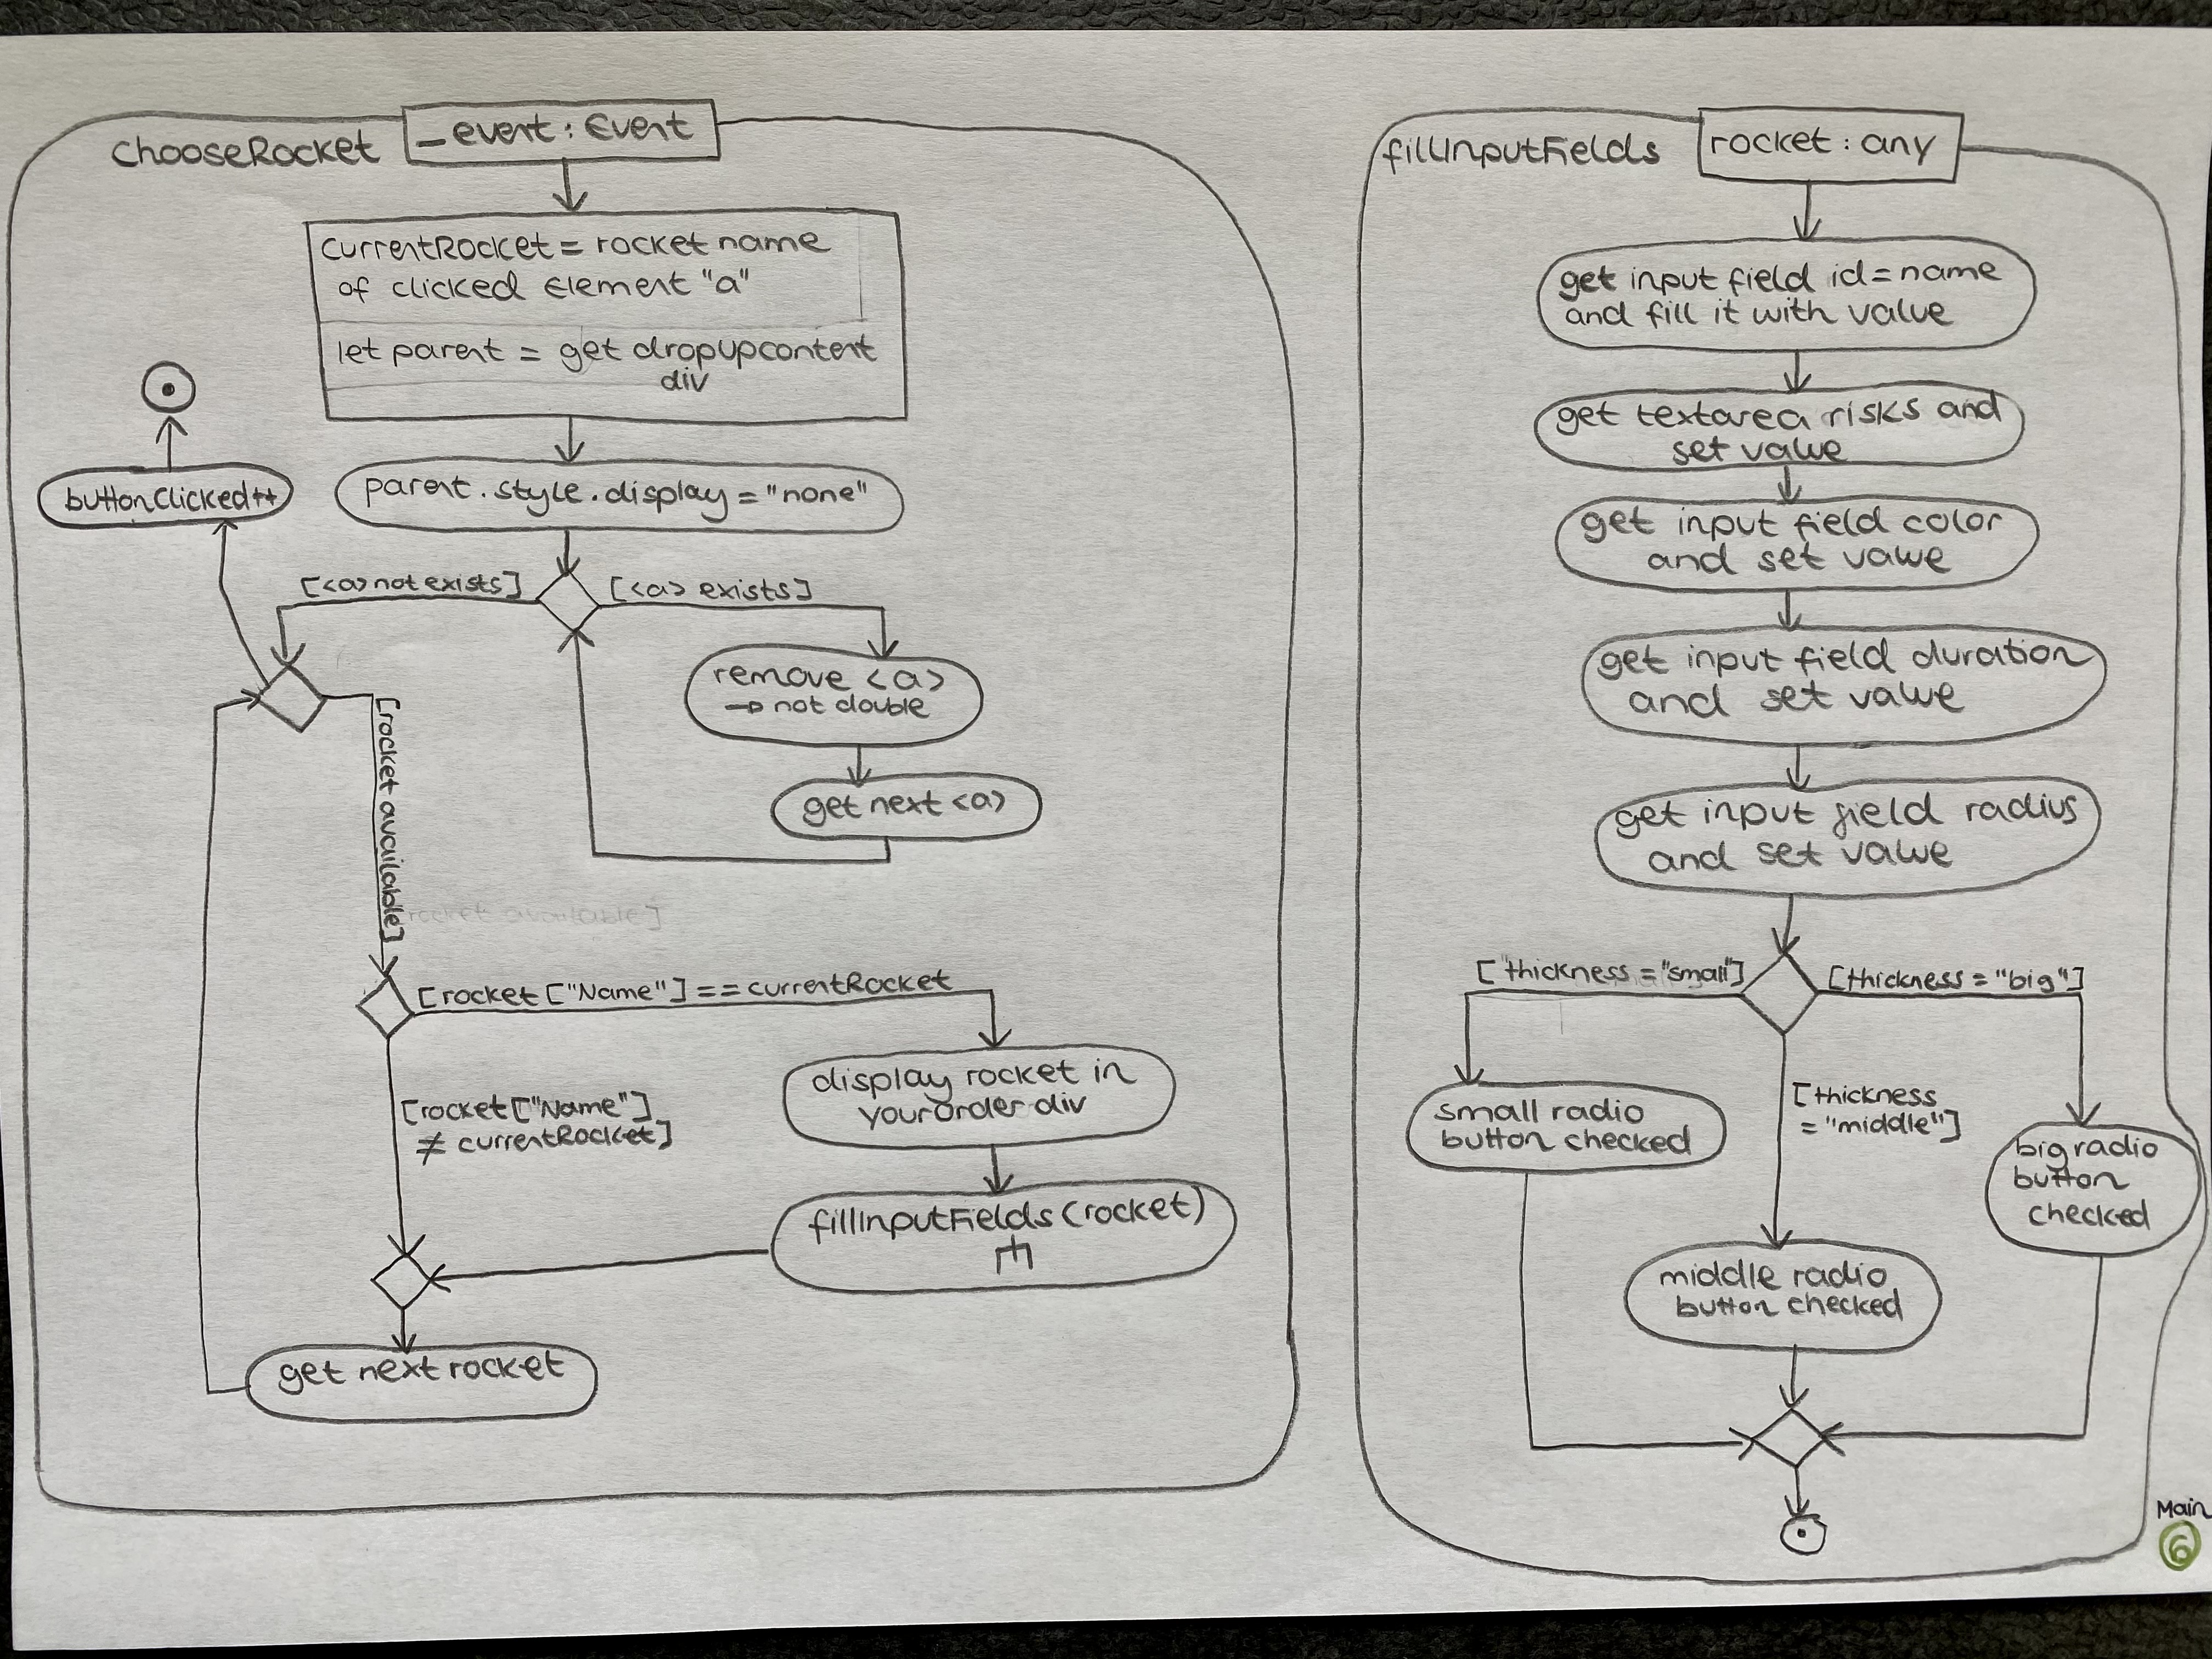 chooseRocket
_event: Event
currentRocket = rocket name
of clicked Element "a"
let parent = get dropupcontent
div
buttonClicked++
parent.style.display = "none"
[<a> not exists]
[<a> exists]
remove <a>
→ not double
get next <a>
[rocket available]
rocket available]
[rocket ["Name"] == currentRocket
[rocket ["Name"]
≠ currentRocket]
display rocket in
yourOrder div
fillInputFields (rocket)
get next rocket
fillInputFields
rocket: any
get input field id = name
and fill it with value
get textarea risks and
set value
get input field color
and set value
get input field duration
and set value
get input field radius
and set value
["thickness = "small"]
[thickness = "big"]
[thickness
= "middle"]
small radio
button checked
big radio
button
checked
middle radio
button checked
Main
6